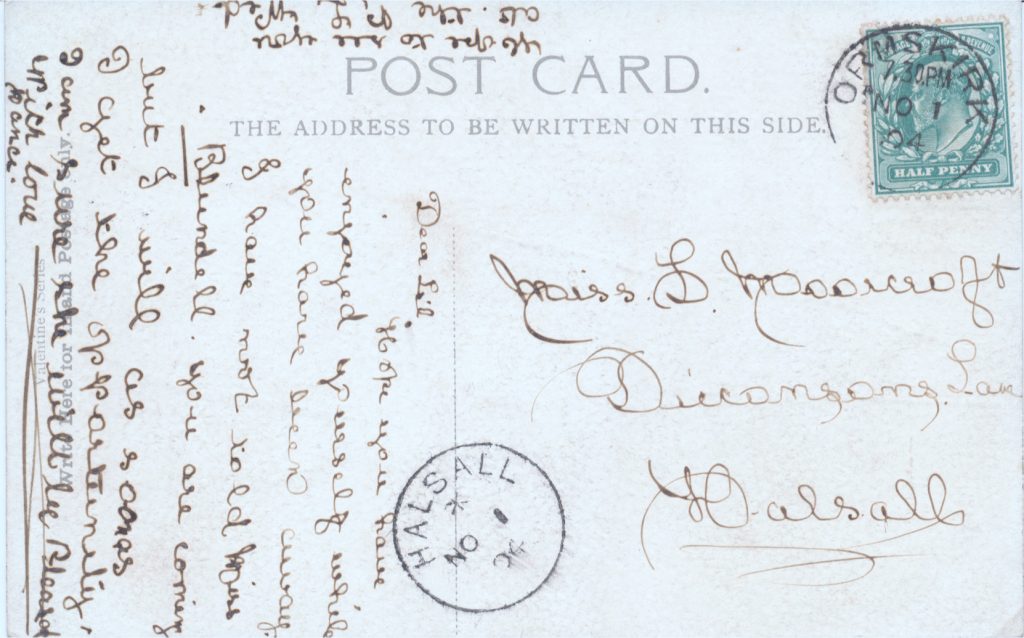 POST CARD.
THE ADDRESS TO BE WRITTEN ON THIS SIDE.
ORMSKIRK
7.30PM
NO 1
04
HALF PENNY
Miss. L. Moorcroft
Lane
Halsall
HALSALL
NO 1
04
Valentine's Series
Write Here for Inland Postage only.
Dear Lil
Hope you have
enjoyed yourself while
you have been away.
I have not told Miss
Blundell you are coming
but I will as soon as
I get the opportunity,
I am sure she will be pleased
with love
hope to see you
as